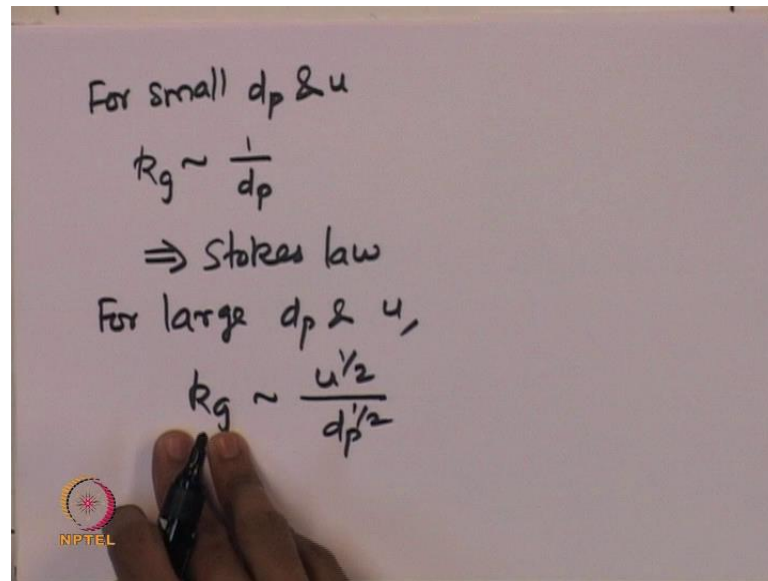 For small dp & u
kg ~ 1/dp
⇒ Stokes law
For large dp & u,
kg ~ u^1/2 / dp^1/2
NPTEL